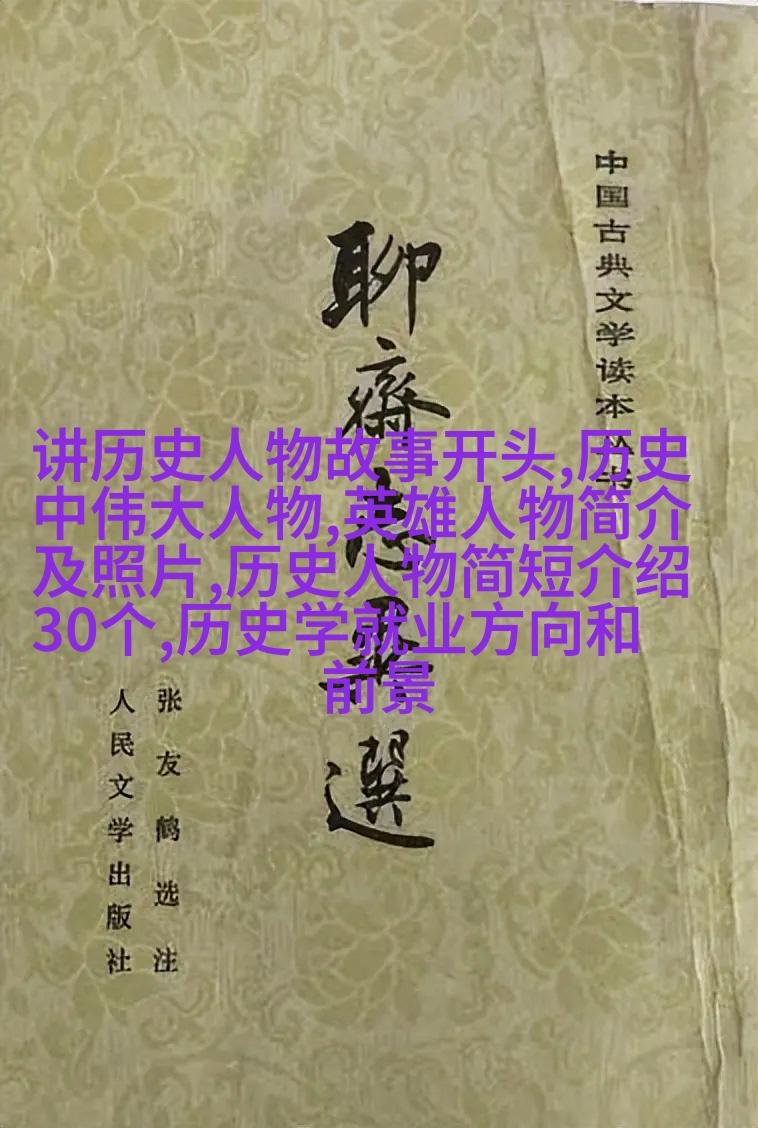 中国古典文学读本丛书
聊齋志異選
张友鹤选注
人民文学出版社
讲历史人物故事开头,历史
中伟大人物,英雄人物简介
及照片,历史人物简短介绍
30个,历史学就业方向和
前景